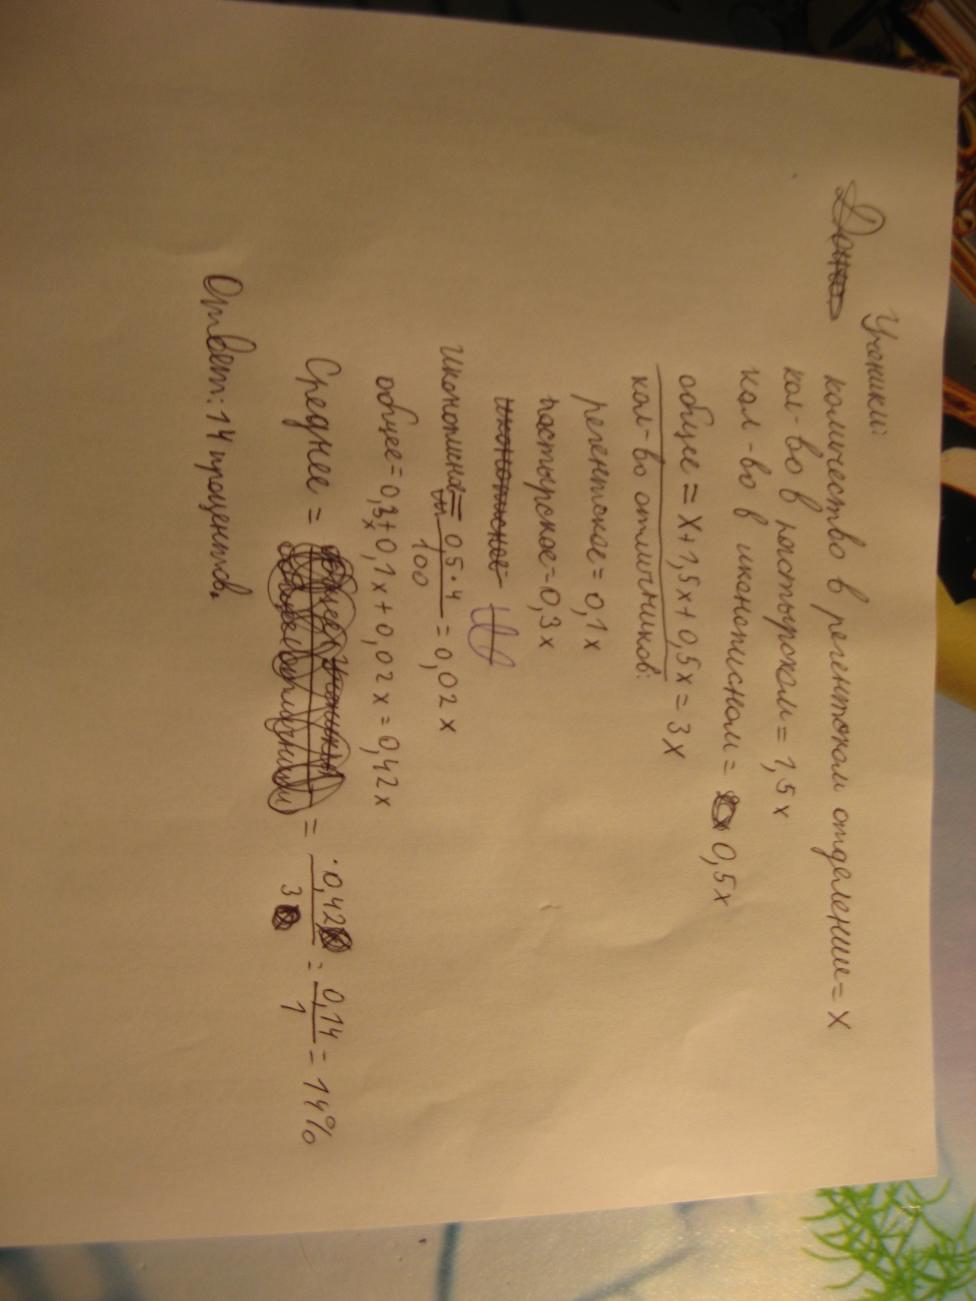 Ученики:
количество в регентском отделении = x
кол-во в пастырском = 1,5x
кол-во в иконописном = 0,5x
общее = x + 1,5x + 0,5x = 3x
кол-во отличников:
регентское = 0,1x
пастырское = 0,3x
иконописное =
Икконописное = 0,5·4/100 = 0,02x
общее = 0,3x + 0,1x + 0,02x = 0,42x
Среднее = = 0,42/3 = 0,14/1 = 14%
Ответ: 14 процентов.